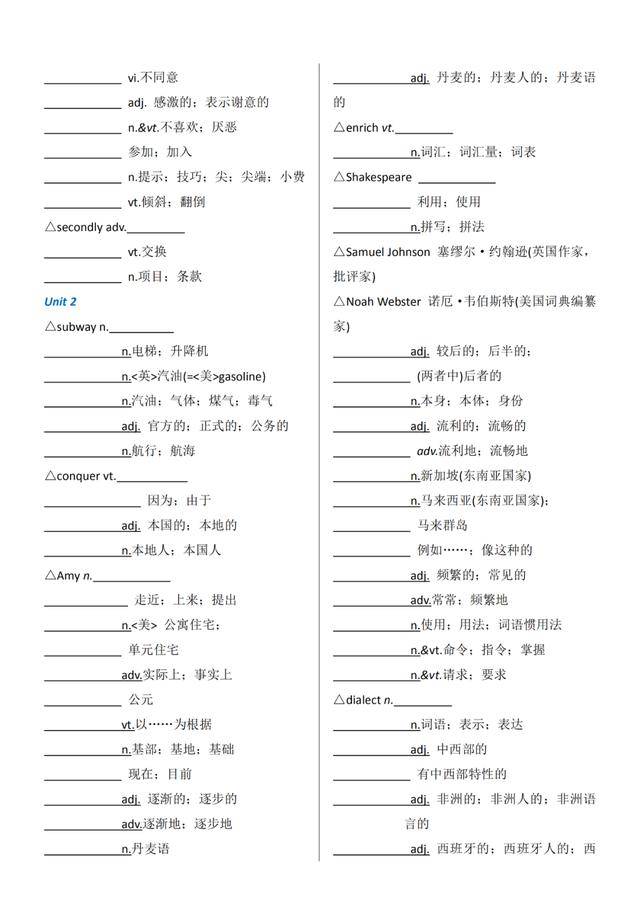 ____________ vi.不同意
____________ adj. 感激的；表示谢意的
____________ n.&vt.不喜欢；厌恶
____________ 参加；加入
____________ n.提示；技巧；尖；尖端；小费
____________ vt.倾斜；翻倒
△secondly adv.________
____________ vt.交换
____________ n.项目；条款
Unit 2
△subway n.________
____________n.电梯；升降机
____________n.<英>汽油(=<美>gasoline)
____________n.汽油；气体；煤气；毒气
____________adj. 官方的；正式的；公务的
____________n.航行；航海
△conquer vt.________
____________ 因为；由于
____________adj. 本国的；本地的
____________n.本地人；本国人
△Amy n.________
____________ 走近；上来；提出
____________n.<美> 公寓住宅；
____________ 单元住宅
____________adv.实际上；事实上
____________ 公元
____________vt.以……为根据
____________n.基部；基地；基础
____________ 现在；目前
____________adj. 逐渐的；逐步的
____________adv.逐渐地；逐步地
____________n.丹麦语
____________adj. 丹麦的；丹麦人的；丹麦语
的
△enrich vt.________
____________n.词汇；词汇量；词表
△Shakespeare ________
____________ 利用；使用
____________n.拼写；拼法
△Samuel Johnson 塞缪尔·约翰逊(英国作家，
批评家)
△Noah Webster 诺厄·韦伯斯特(美国词典编纂
家)
____________adj. 较后的；后半的；
____________ (两者中)后者的
____________n.本身；本体；身份
____________adj. 流利的；流畅的
____________ adv.流利地；流畅地
____________n.新加坡(东南亚国家)
____________n.马来西亚(东南亚国家)；
____________ 马来群岛
____________ 例如……；像这种的
____________adj. 频繁的；常见的
____________adv.常常；频繁地
____________n.使用；用法；词语惯用法
____________n.&vt.命令；指令；掌握
____________n.&vt.请求；要求
△dialect n.________
____________n.词语；表示；表达
____________adj. 中西部的
____________ 有中西部特性的
____________adj. 非洲的；非洲人的；非洲语
言的
____________adj. 西班牙的；西班牙人的；西